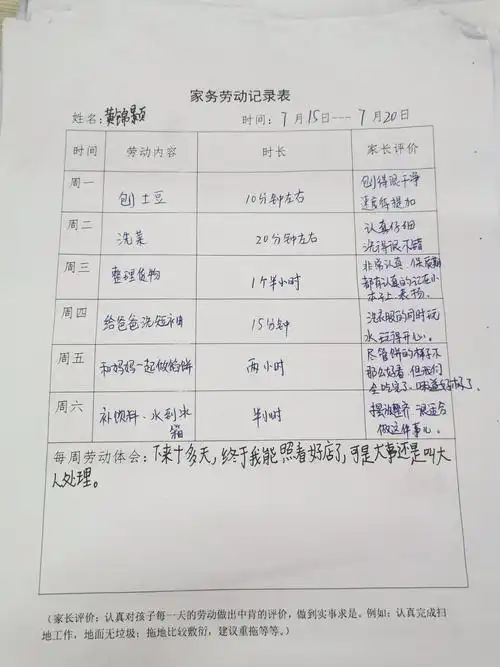 家务劳动记录表
姓名:黄锦颢 时间:7月15日---7月20日
时间 劳动内容 时长 家长评价
周一 刨土豆 10分钟左右 刨得很干净
速度得提加
周二 洗菜 20分钟左右 认真仔细
洗得很不错
周三 整理货物 1个半小时 非常认真 保质期
都有认真的记在小
本子上.表扬.
周四 给爸爸洗短袖 15分钟 洗衣服的同时玩
水玩得开心。
周五 和妈妈一起做馅饼 两小时 尽管饼的样子不
那么好看 但我们
全吃完了.味道好极了.
周六 补饮料、水到冰
箱 半小时 摆放整齐 很适合
做这件事儿。
每周劳动体会:下来十多天,终于我能照看好店了,可是大事还是叫大
人处理。
(家长评价:认真对孩子每一天的劳动做出中肯的评价,做到实事求是。例如:认真完成扫
地工作,地面无垃圾;拖地比较敷衍,建议重拖等等。)